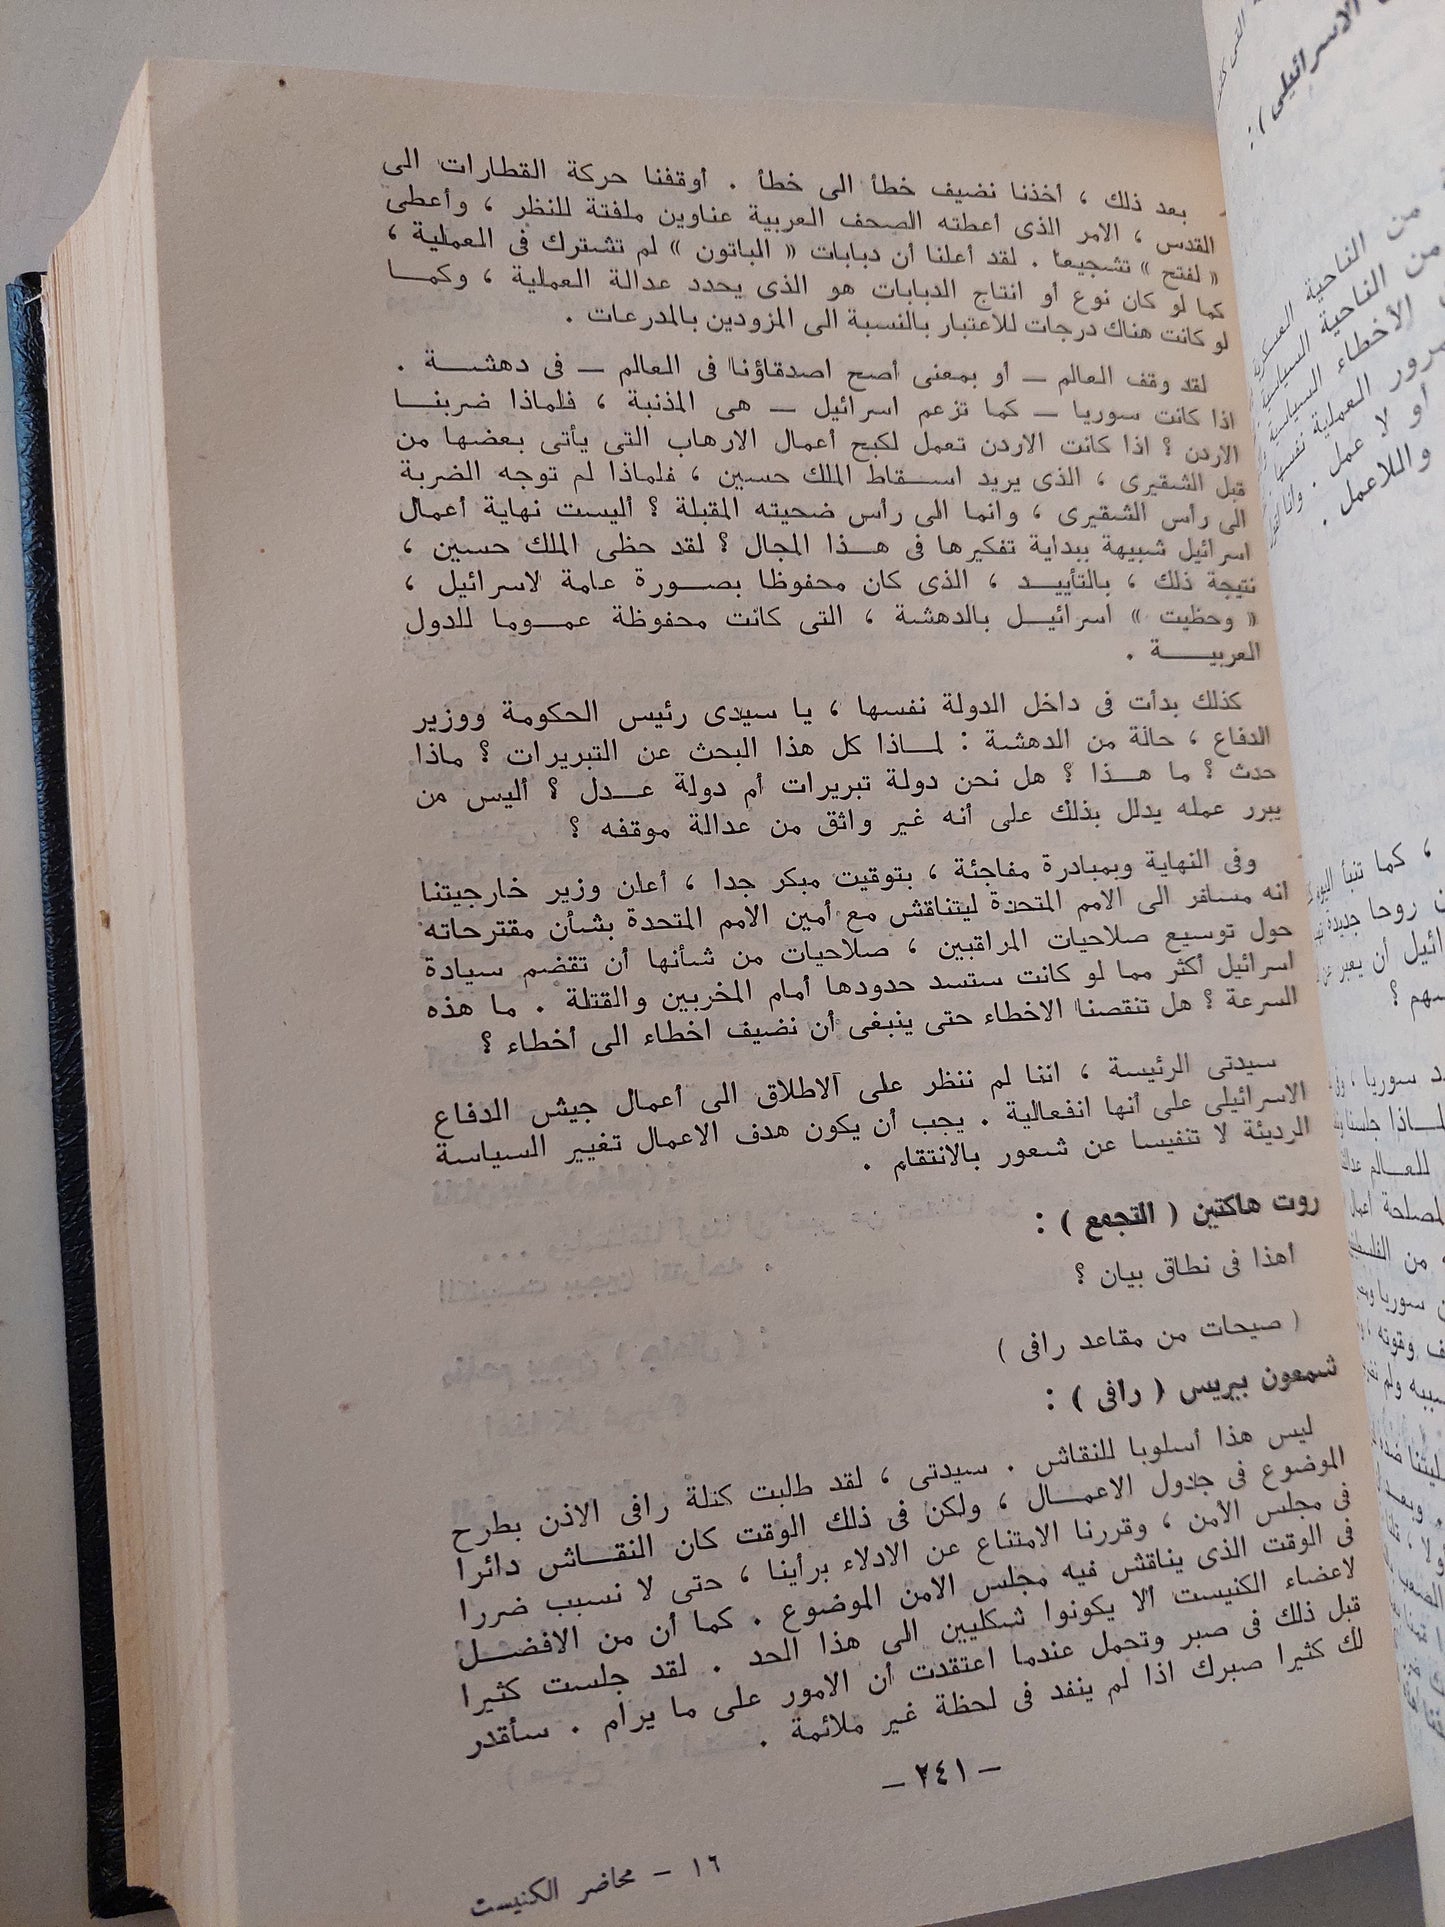 بعد ذلك ، أخذنا نضيف خطأ الى خطأ . أوقفنا حركة القطارات الى
القدس ، الامر الذى أعطته الصحف العربية عناوين ملفتة للنظر ، وأعطى
« لفتح » تشجيعا . لقد أعلنا أن دبابات « الباتون » لم تشترك فى العملية ،
كما لو كان نوع أو انتاج الدبابات هو الذى يحدد عدالة العملية ، وكمـا
لو كانت هناك درجات للاعتبار بالنسبة الى المزودين بالمدرعات .
لقد وقف العالم ــ أو بمعنى أصح اصدقاؤنا فى العالم ــ فى دهشـــة .
اذا كانت سوريا ــ كما تزعم اسرائيل ــ هى المذنبة ، فلماذا ضربنـا
الاردن ؟ اذا كانت الاردن تعمل لكبح أعمال الارهاب التى يأتى بعضها من
قبل الشقيرى ، الذى يريد اسـقاط الملك حسين ، فلماذا لم توجه الضربة
الى رأس الشقيرى ، وانما الى رأس ضحيته المقبلة ؟ أليست نهاية أعمال
اسرائيل شبيهة ببداية تفكيرها فى هـذا المجال ؟ لقد حظى الملك حسين ،
نتيجة ذلك ، بالتأييـد ، الذى كان محفوظا بصـورة عامة لاسرائيل ،
« وحظيت » اسرائيـل بالدهشة ، التى كانت محفوظة عمـوما للدول
العربيـــة .
كذلك بدأت فى داخل الدولة نفسها ، يا سيدى رئيس الحكومة ووزير
الدفاع ، حالة من الدهشة : لمـاذا كل هذا البحث عن التبريرات ؟ ماذا
حدث ؟ ما هـذا ؟ هل نحن دولة تبريرات أم دولة عـدل ؟ أليس من
يبرر عمله يدلل بذلك على أنه غير واثق من عدالة موقفه ؟
وفى النهاية وبمبادرة مفاجئة ، بتوقيت مبكر جدا ، أعلن وزير خارجيتنا
انه مسافر الى الامم المتحدة ليتناقش مع أمين الامم المتحدة بشأن مقترحاته
حول توسيع صلاحيات المراقبين ، صلاحيات من شأنها أن تقضم سيادة
اسرائيل أكثر مما لو كانت ستسد حدودها أمام المخربين والقتلة . ما هذه
السرعة ؟ هل تنقصنا الاخطاء حتى ينبغى أن نضيف اخطاء الى أخطاء ؟
سيدتى الرئيسة ، اننا لم ننظر على الاطلاق الى أعمال جيش الدفاع
الاسرائيلى على أنها انفعالية . يجب أن يكون هدف الاعمال تغيير السياسة
الرديئة لا تنفيسا عن شعور بالانتقام .
روت هاكتين ( التجمع ) :
أهذا فى نطاق بيان ؟
( صيحات من مقاعد رافى )
شمعون بيريس ( رافى ) :
ليس هذا أسلوبا للنقاش . سيدتى ، لقد طلبت كتلة رافى الاذن بطرح
الموضوع فى جدول الاعمـال ، ولكن فى ذلك الوقت كان النقـاش دائرا
فى مجلس الأمن ، وقررنا الامتناع عن الادلاء برأينا ، حتى لا نسبب ضررا
فى الوقت الذى يناقش فيه مجلس الامن الموضوع . كما أن من الافضـل
لاعضاء الكنيست ألا يكونوا شكليين الى هذا الحد . لقد جلست كثيرا
قبل ذلك فى صبر وتحمل عندما اعتقدت أن الامور على ما يرام . سأقدر
لك كثيرا صبرك اذا لم ينفد فى لحظة غير ملائمة .
– ٢٤١ –
١٦ – محاضر الكنيست
الاسرائيلى ) :
من الناحية العسكرية
من الناحية السياسية
الأخطاء السياسية
مرور العملية نفسها
أو لا عمل . وانا
واللاعمل .
، كما تنبأ اليوم
روحا جديدة
أن يعبر عن